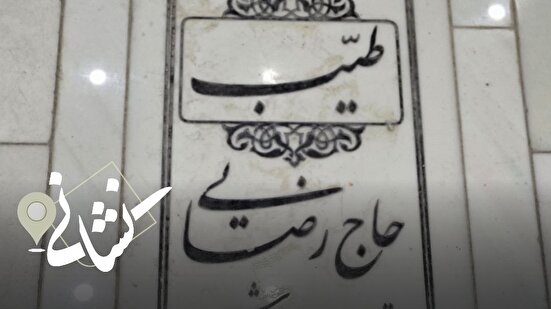 طیّب
حاج رضایی
نشانی